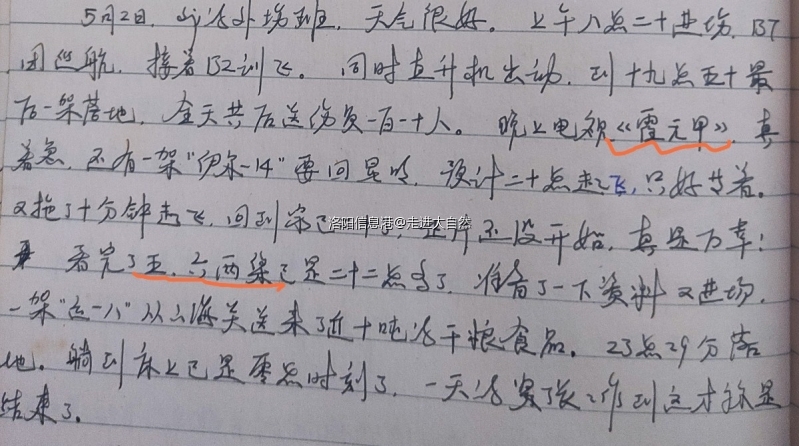 5月2日，外场班，天气很好。上午八点二十进场，137
团巡航，接着132训飞。同时直升机出动，到十九点五十最
后一架落地，全天共后送伤员一百一十人。晚上电视《霍元甲》，真
着急，还有一架"伊尔-14"要回昆明，预计二十点起飞，只好等着。
又拖了十分钟起飞，回到家已 了，正片还没开始，真是万幸！
看完了五、六两集已是二十二点多了，准备了一下资料又进场，
一架"运一八"从上海关送来了近十吨 干粮食品。23点29分落
地。躺到床上已是零点时刻了，一天 紧张工作到这才算是
结束了。
洛阳信息港@走进大自然